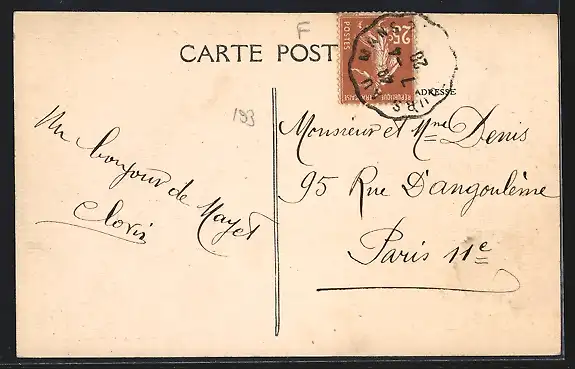 F
CARTE POST
25c
POSTES
REPUBLIQUE FRANÇAISE
MANS
ADRESSE
193
Un bonjour de Mayet
Cloris
Monsieur et Mme Denis
95 Rue D'angoulême
Paris 11e